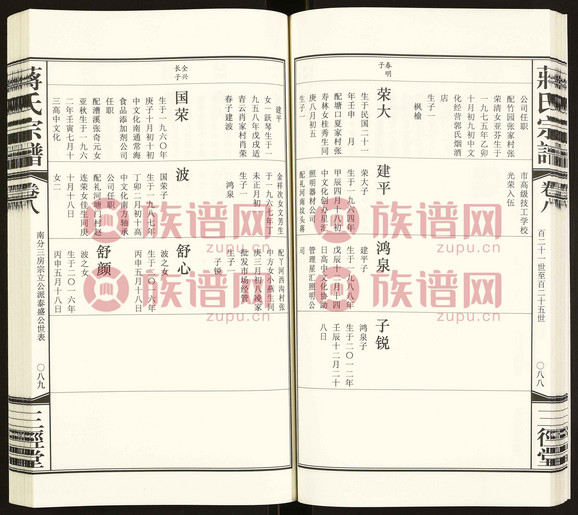 蔣氏宗譜
卷八
百二十一世至百二十五世
〇八八
三徑堂
公司任职
配竹园张家村张
荣清女亚芬生于
一九七五年乙卯
十月初九初中文
化经营郭氏烟酒
店
生子一
枫榆
市高级技工学校
光荣入伍
春明
子
荣大
生于民国二十一
年壬申月日
配塘口夏家村张
寿林女桂秀生同
庚八月初五
生子一
建平
荣大子
生于一九六四年
甲辰四月十八初
中文化创办星汇
照明器材公司
配礼河南坟头蒋
鸿泉
建平子
生于一九八八年
戊辰十二月十四
日中文化协助
管理星汇照明公
司
子锐
鸿泉子
生于二〇一二年
壬辰十二月二十
八日
建平
女一跃琴生于一
九五八年戊戌适
青云肖家村肖荣
春子建波
金祥牧女文芳生
于一九六七年丁
未正月初
生子一
鸿泉
配丫河西沟村张
中方女小燕生同
庚三月初八晚家
批发市场经管
生子一
子锐
全兴
长子
国荣
生于一九六〇年
庚子十月初十初
中文化南通常海
食品添加剂公司
任职
配漕溪张奇元女
亚秋生于一九六
二年壬寅七月十
三高中文化
波
国荣子
生于一九八七年
丁卯二月初三高
中文化南方轴承
公司任职
配礼河塘门村赵
连荣女佳生同庚
十月十八日
女二
舒心
波之女
生于二〇一六年
丙申五月十八日
舒颜
波之女
生于二〇一六年
丙申五月十八日
蔣氏宗譜
卷八
南分三房宗立公派泰盛公世表
〇八九
三徑堂
族谱网
zupu.cn